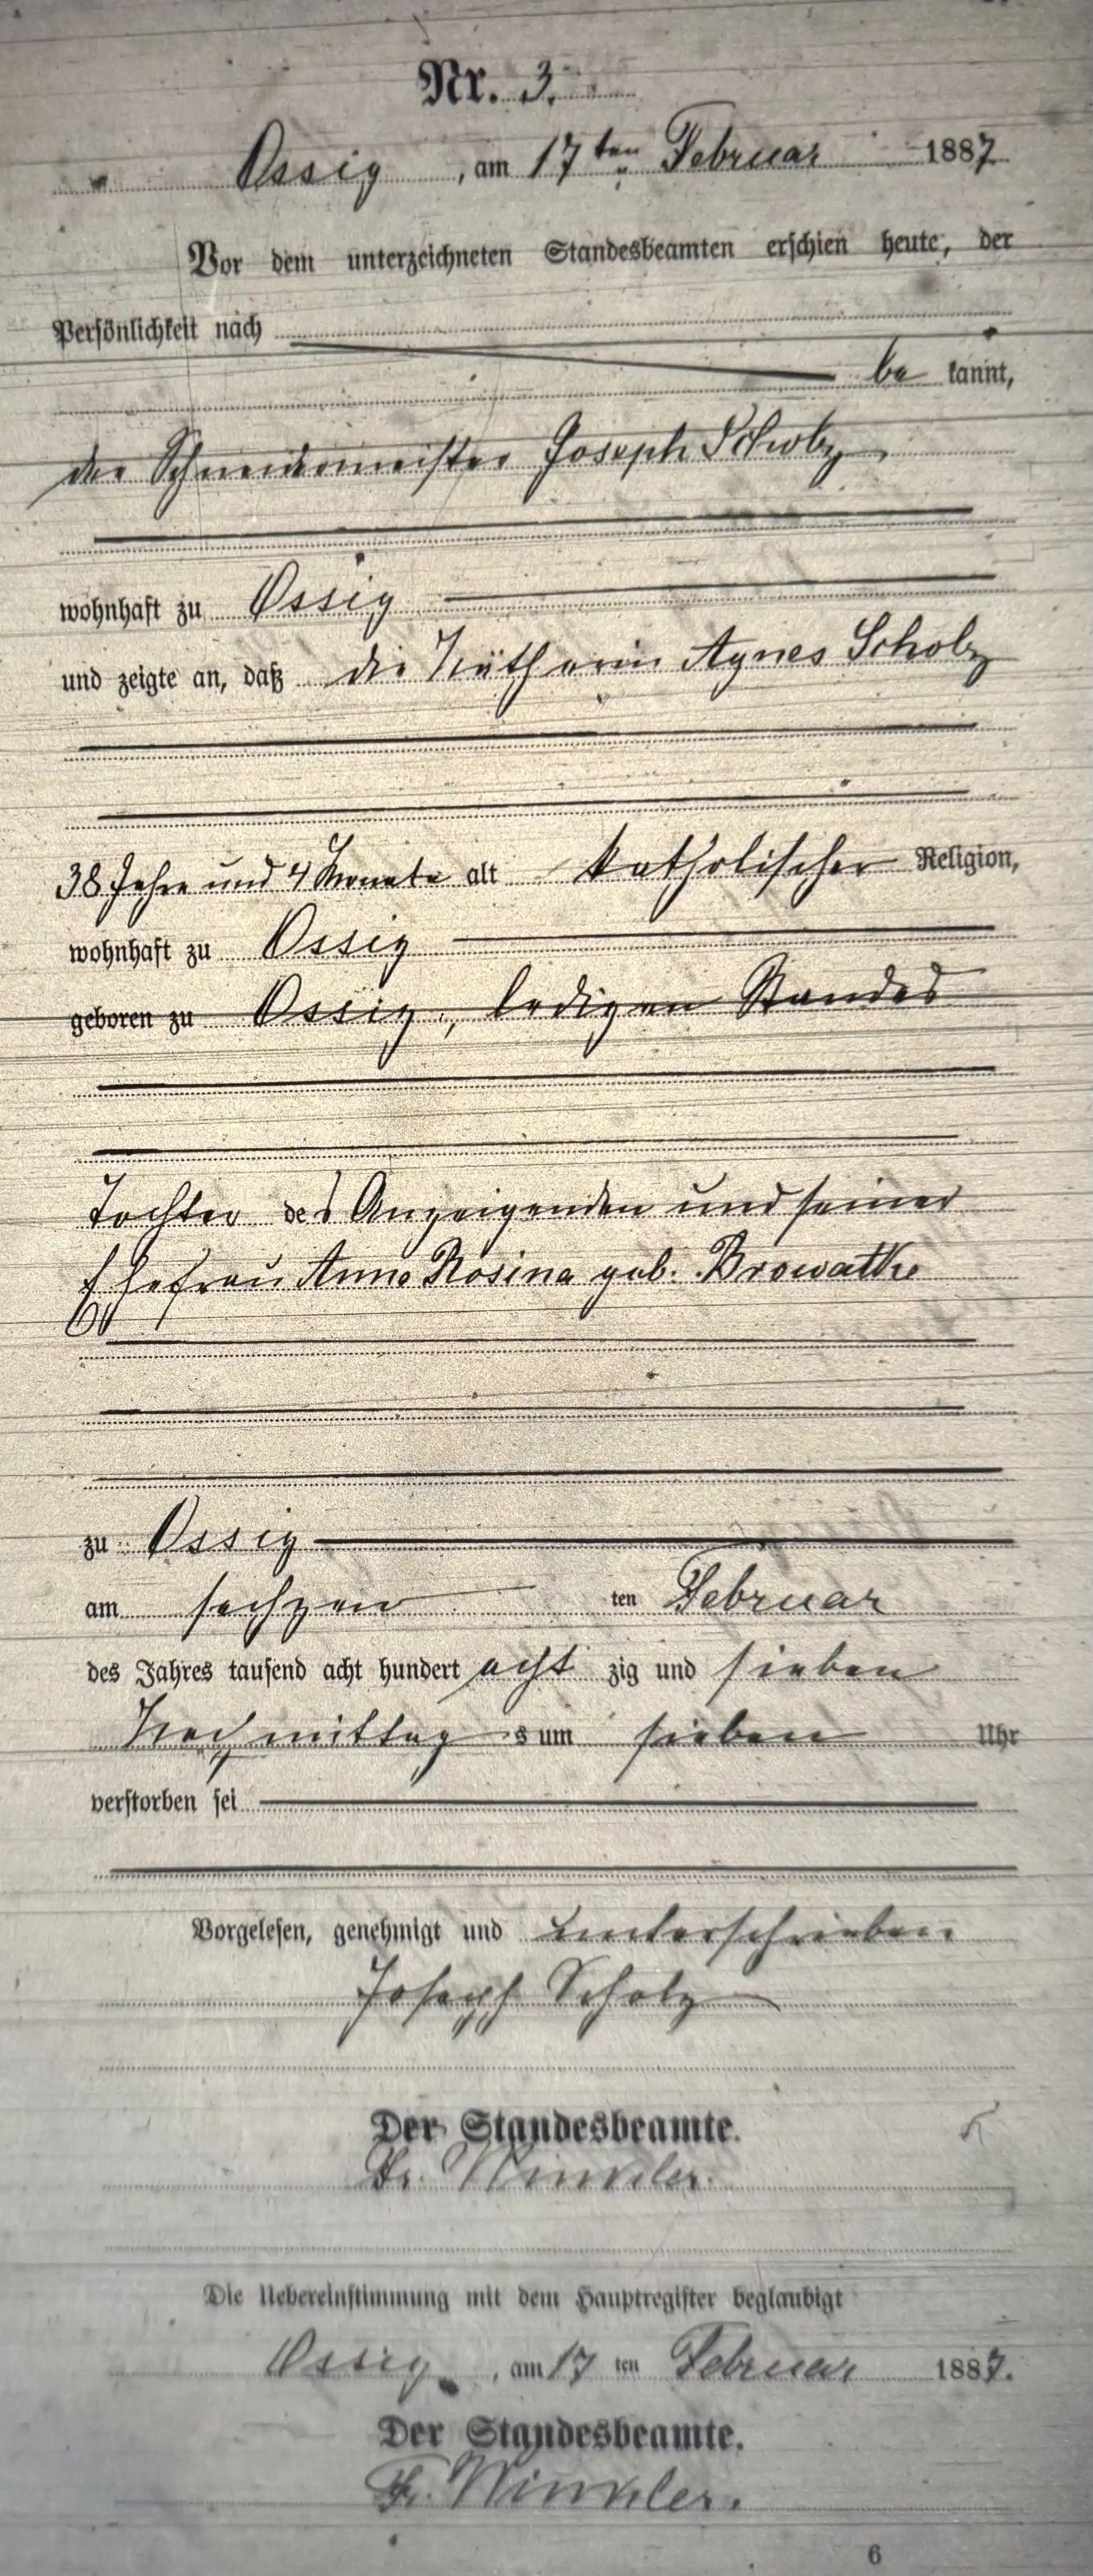 Nr. 3.
Ossig, am 17ten Februar 1887
Vor dem unterzeichneten Standesbeamten erschien heute, der
Persönlichkeit nach
be kannt,
der Schneidermeister Joseph Scholz,
wohnhaft zu Ossig
und zeigte an, daß die Nätherin Agnes Scholz
38 Jahre und 4 Monate alt katholischer Religion,
wohnhaft zu Ossig
geboren zu Ossig, ledigen Standes
Tochter des Anzeigenden und seiner
Ehefrau Anna Rosina geb. Browatke
zu Ossig
am sechzen ten Februar
des Jahres tausend acht hundert acht zig und sieben
Nachmittag s um sieben Uhr
verstorben sei
Vorgelesen, genehmigt und unterschrieben
Joseph Scholz
Der Standesbeamte.
Fr. Winkler.
Die Uebereinstimmung mit dem Hauptregister beglaubigt
Ossig, am 17 ten Februar 1887.
Der Standesbeamte.
Fr. Winkler.
6